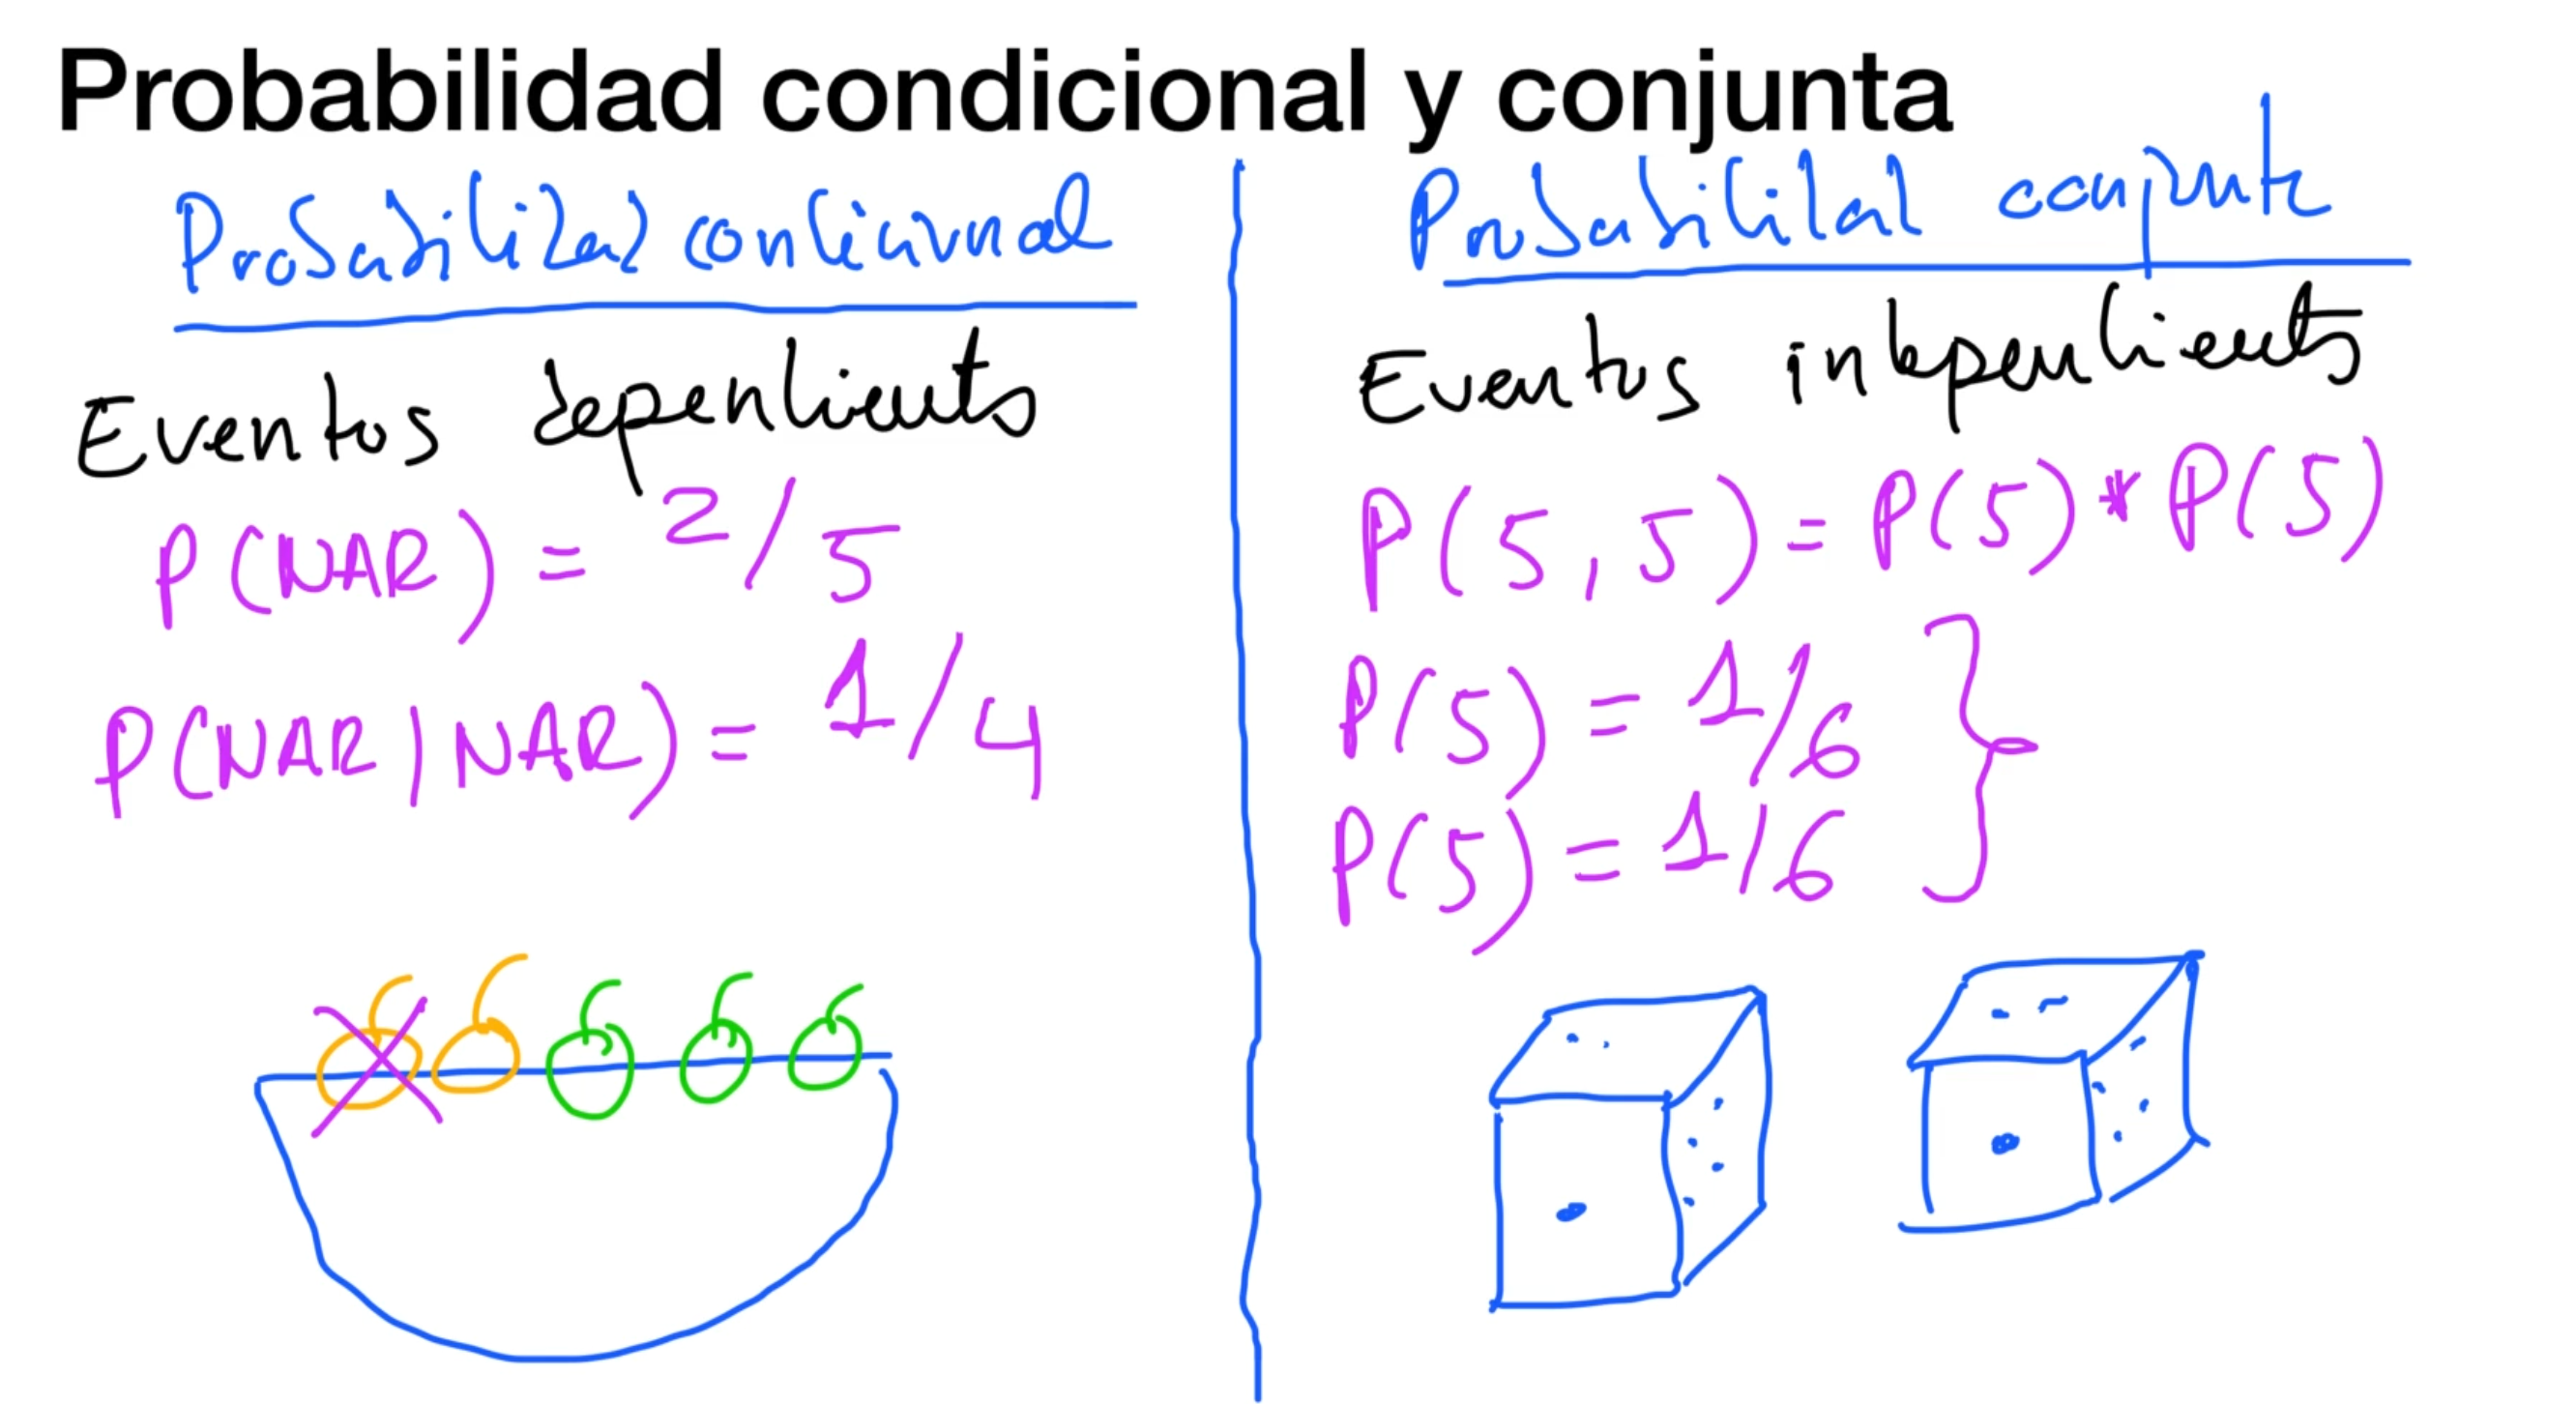 Probabilidad condicional y conjunta
Probabilidad condicional
Eventos dependientes
P(NAR) = 2/5
P(NAR|NAR) = 1/4
Probabilidad conjunta
Eventos independientes
P(5,5) = P(5) * P(5)
P(5) = 1/6
P(5) = 1/6